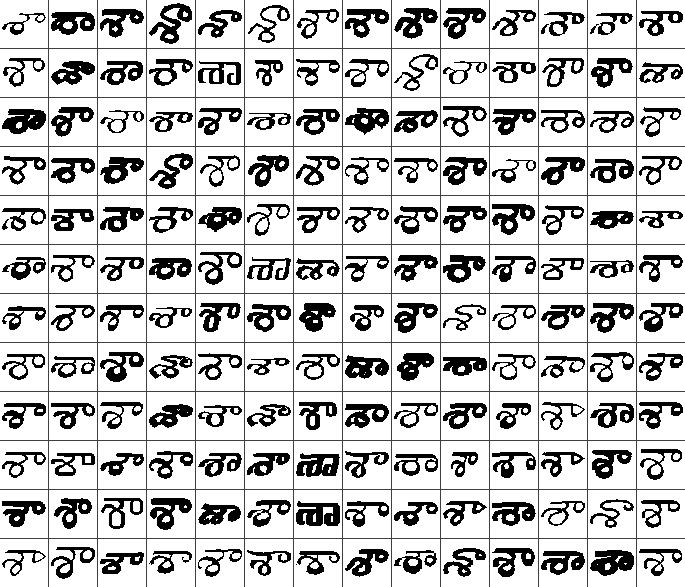 శా శా శా శా శా శా శా శా శా శా శా శా శా శా
శా శా శా శా శా శా శా శా శా శా శా శా శా శా
శా శా శా శా శా శా శా శా శా శా శా శా శా శా
శా శా శా శా శా శా శా శా శా శా శా శా శా శా
శా శా శా శా శా శా శా శా శా శా శా శా శా శా
శా శా శా శా శా శా శా శా శా శా శా శా శా శా
శా శా శా శా శా శా శా శా శా శా శా శా శా శా
శా శా శా శా శా శా శా శా శా శా శా శా శా శా
శా శా శా శా శా శా శా శా శా శా శా శా శా శా
శా శా శా శా శా శా శా శా శా శా శా శా శా శా
శా శా శా శా శా శా శా శా శా శా శా శా శా శా
శా శా శా శా శా శా శా శా శా శా శా శా శా శా